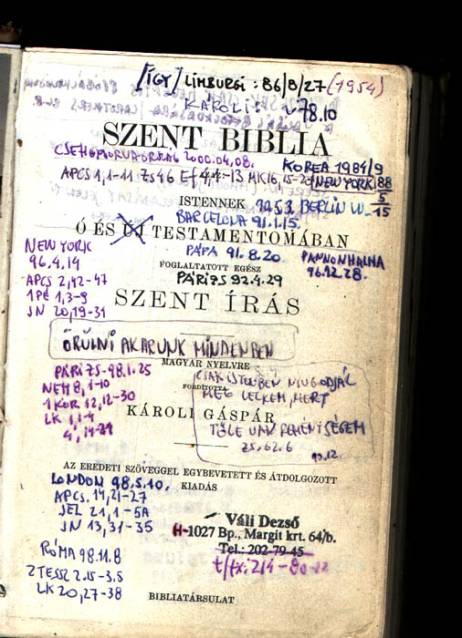 [ÍGY] LIMBURGI : 86/8/27 (1954)
KÁROLI: V. 78.10
SZENT BIBLIA
2000.04,08.
KOREA 1984/9
APCS 1,1-11 Zs 46 Ef 4,4-13 MK 16,15-20
NEW YORK 88
5
15
ISTENNEK
1953. BERLIN W.
BARCELONA 91.1.15.
Ó ÉS ÚJ TESTAMENTOMÁBAN
PÁPA 91.8.20.
PANNONHALMA
96.12.28.
FOGLALTATOTT EGÉSZ
PÁRIZS 92.4.29
NEW YORK
96.4.14
APCS 2,42-47
1PÉ 1,3-9
JN 20,19-31
SZENT ÍRÁS
ÖRÜLNI AKARUNK MINDENBEN
MAGYAR NYELVRE
FORDÍTOTTA
KÁROLI GÁSPÁR
CSAK ISTENBEN NYUGODJÁL
MEG LELKEM, MERT
TŐLE VAN REMÉNYSÉGEM
ZS. 62.6
PÁRIZS-98.1.25
NEH 8,1-10
1 KOR 12,12-30
LK 1,1-4
4,14-21
AZ EREDETI SZÖVEGGEL EGYBEVETETT ÉS ÁTDOLGOZOTT
KIADÁS
LONDON 98.5.10.
APCS. 14,21-27
JEL 21,1-5A
JN 13,31-35
Váli Dezső
H-1027 Bp., Margit krt. 64/b.
Tel.: 202-79-45
RÓMA 98.11.8
2TESSZ 2.15-3.5
LK 20,27-38
BIBLIATÁRSULAT